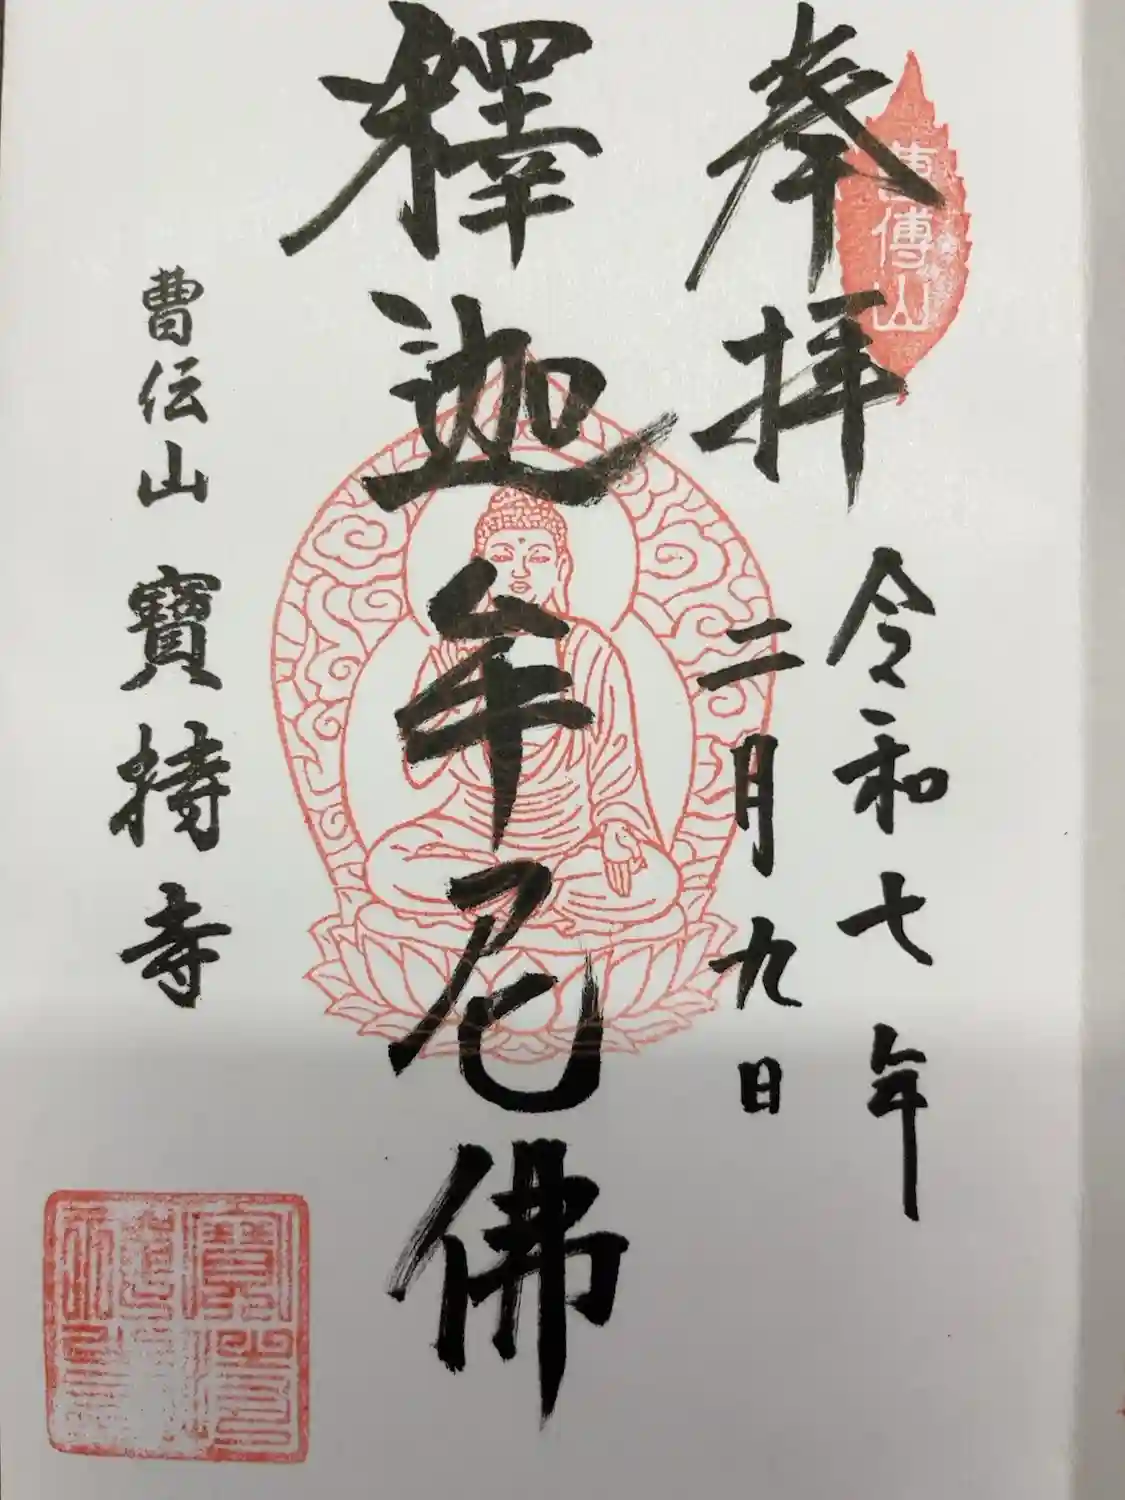 奉拝
令和七年
二月九日
釋迦牟尼佛
曹伝山 寶持寺
曹傳山